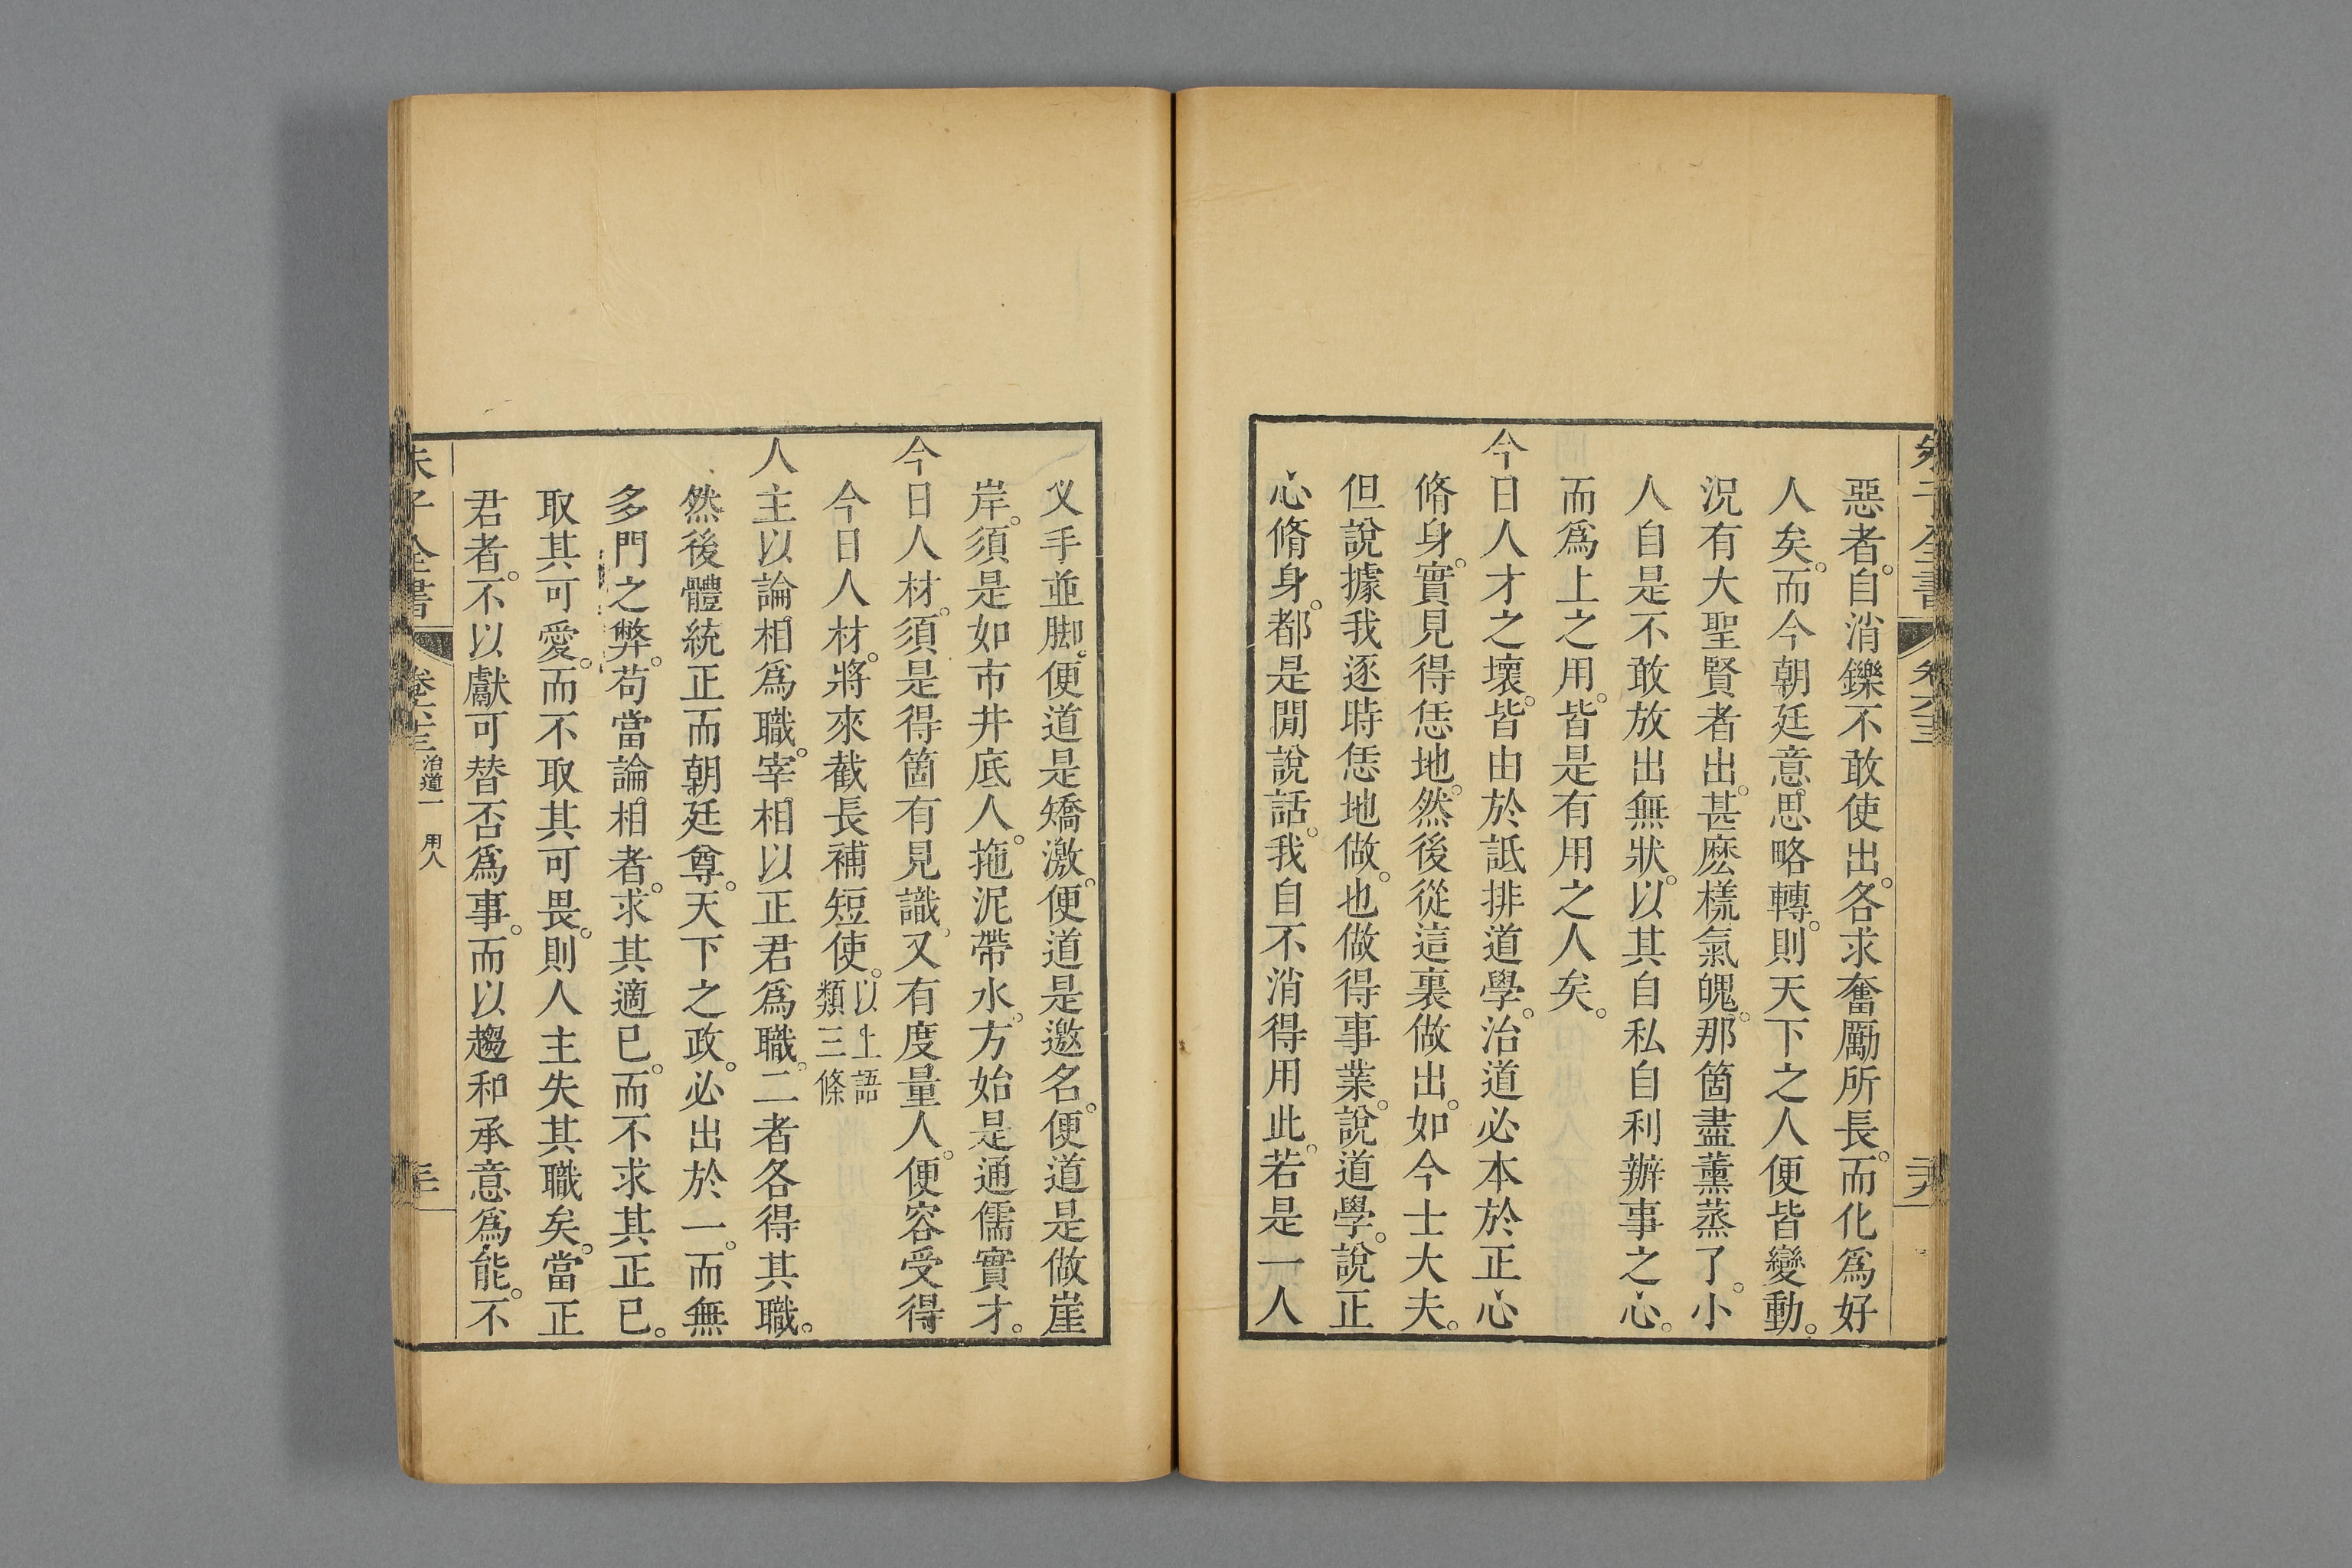 惡者。自消鑠不敢使出。各求奮厲所長。而化爲好
人矣。而今朝廷意思略轉。則天下之人便皆變動。
況有大聖賢者出。甚麽樣氣魄。那箇盡薰蒸了。小
人自是不敢放出無狀。以其自私自利辦事之心。
而爲上之用。皆是有用之人矣。
今日人才之壞。皆由於詆排道學。治道必本於正心
脩身。實見得恁地。然後從這裏做出。如今士大夫。
但說據我逐時恁地做。也做得事業。說道學。說正
心脩身。都是閒說話。我自不消得用此。若是一人
叉手並脚。便道是矯激。便道是邀名。便道是做崖
岸。須是如市井底人。拖泥帶水。方始是通儒實才。
今日人材。須是得箇有見識。又有度量人。便容受得
今日人材。將來截長補短使。以上語類三條
人主以論相爲職。宰相以正君爲職。二者各得其職。
然後體統正而朝廷尊。天下之政。必出於一。而無
多門之弊。苟當論相者。求其適己。而不求其正己。
取其可愛。而不取其可畏。則人主失其職矣。當正
君者。不以獻可替否爲事。而以趨和承意爲能。不
朱子全書 卷六十三 治道一 用人